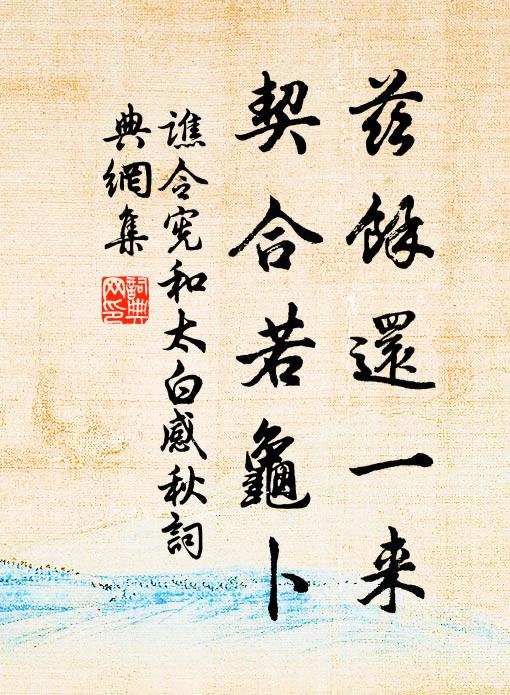 茲餘還一来
契合若龜卜
譙令憲和太白感秋詞
典網集
詞典网印